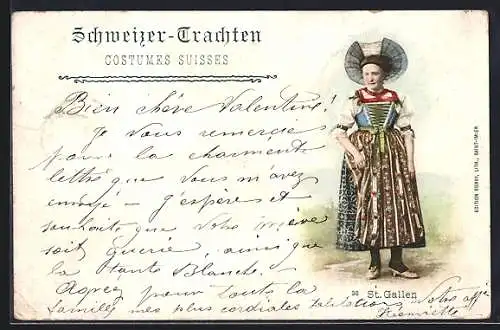 Schweizer-Trachten
COSTUMES SUISSES
Bien chère Valentine!
Je vous remercie
pour la charmante
lettre que vous m'avez
envoyé - j'espère et
souhaite que votre mère
soit guérie, ainsi que
la tante Blanche.
Agréez pour toute la
famille mes plus cordiales salutations Votre aff
Henriette
36 St. Gallen
SAINT-IMIER